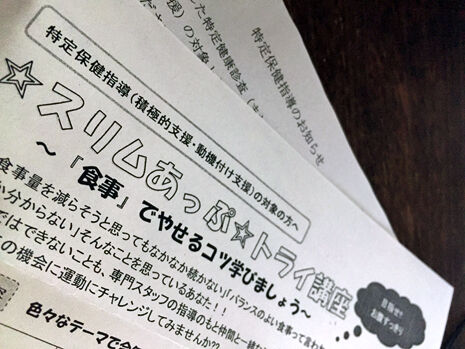 援)の対象
した特定健康診査(
特定保健指導のお知らせ
特定保健指導(積極的支援・動機付け支援)の対象の方へ
☆スリムあっぷ☆トライ講座
～『食事』でやせるコツ学びましょう～
食事量を減らそうと思ってもなかなか続かない」「バランスのよい食事って言われ
分からない」そんなことを思っているあなた!!
ではできないことも、専門スタッフの指導のもと仲間と一緒な
の機会に運動にチャレンジしてみませんか??
目指せ!!
お腹すっきり
色々なテーマで会